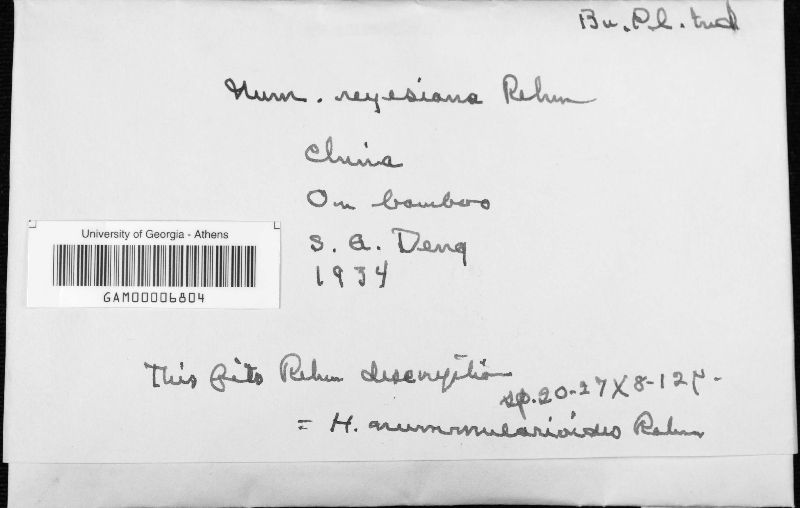 Bu. Pl. Ind
Num. reyesiana Rehm
China
On bamboo
University of Georgia - Athens
S. Q. Deng
1934
GAM00006804
This fits Rehm description
sp. 20-27 X 8-12 μ.
= H. nummularioides Rehm